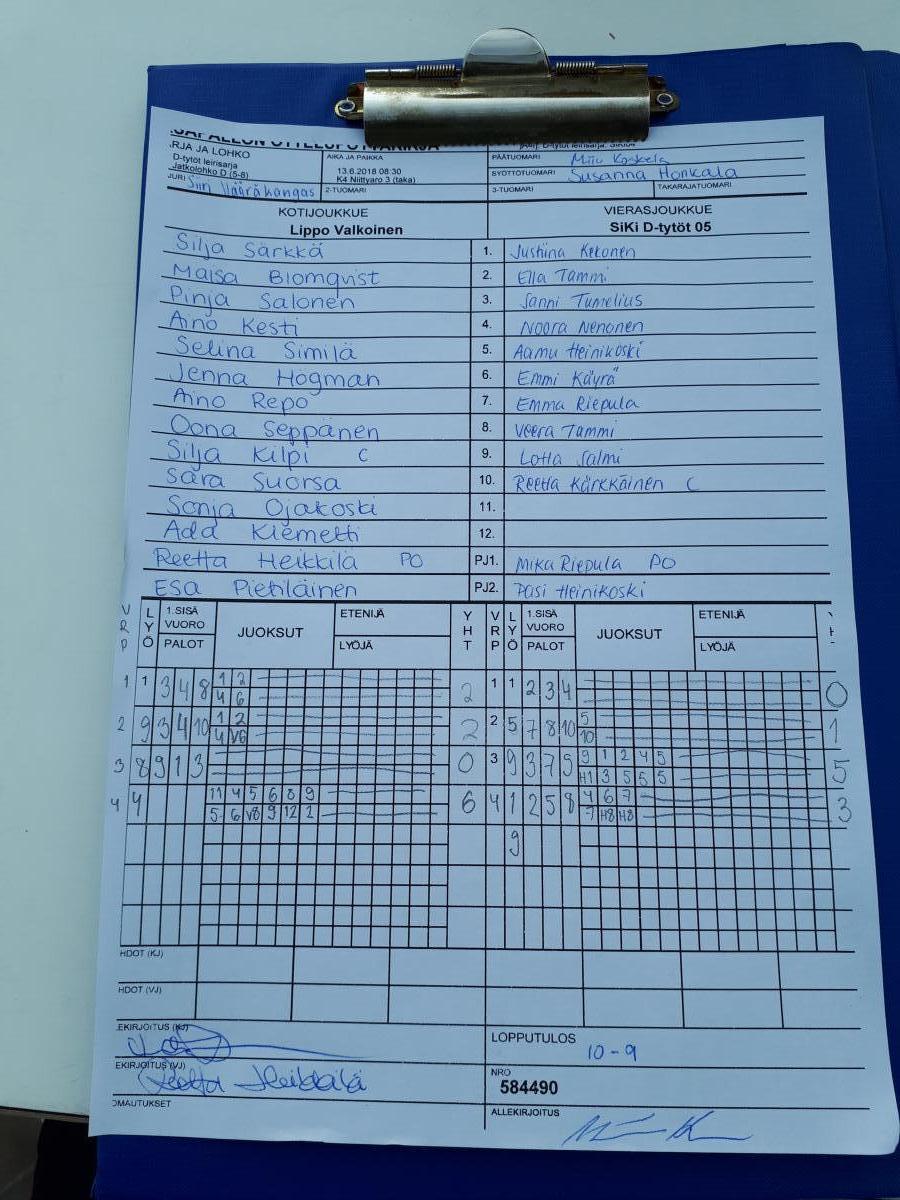 RJA JA LOHKO
D-tytöt leirisarja
Jatkolohko D (5-8)
AIKA JA PAIKKA
13.6.2018 08:30
K4 Niittyaro 3 (taka)
PÄÄTUOMARI Miiu Koskela
SYÖTTÖTUOMARI Susanna Honkala
JURI Siiri Määräkangas
2-TUOMARI
3-TUOMARI
TAKARAJATUOMARI
KOTIJOUKKUE VIERASJOUKKUE
Lippo Valkoinen SiKi D-tytöt 05
Silja Särkkä 1. Justiina Kekonen
Maisa Blomqvist 2. Ella Tammi
Pinja Salonen 3. Sanni Tumelius
Aino Kesti 4. Noora Nenonen
Selina Similä 5. Aamu Heinikoski
Jenna Högman 6. Emmi Käyrä
Aino Repo 7. Emma Riepula
Oona Seppänen 8. Veera Tammi
Silja Kilpi C 9. Lotta Salmi
Sara Suorsa 10. Reetta Kärkkäinen C
Sonja Ojakoski 11.
Ada Klemetti 12.
Reetta Heikkilä PO PJ1. Mika Riepula PO
Esa Pietiläinen PJ2. Pasi Heinikoski
VRP LYÖ 1.SISÄ VUORO PALOT JUOKSUT ETENIJÄ LYÖJÄ YHT VRP LYÖ 1.SISÄ VUORO PALOT JUOKSUT ETENIJÄ LYÖJÄ
1 1 3 4 8 1 2 2 1 1 2 3 4 0
4 6
2 9 3 4 10 1 2 2 2 5 7 8 10 5 1
4 V6 10
3 8 9 1 3 0 3 9 3 7 5 9 1 2 4 5 5
H1 3 5 5 5
4 4 11 4 5 6 8 9 6 4 1 2 5 8 4 6 7 3
5 6 V8 9 12 1 7 H8 H8
9
HDOT (KJ)
HDOT (VJ)
EKIRJOITUS (KJ)
LOPPUTULOS 10-9
EKIRJOITUS (VJ) Reetta Heikkilä
NRO
584490
OMAUTUKSET
ALLEKIRJOITUS